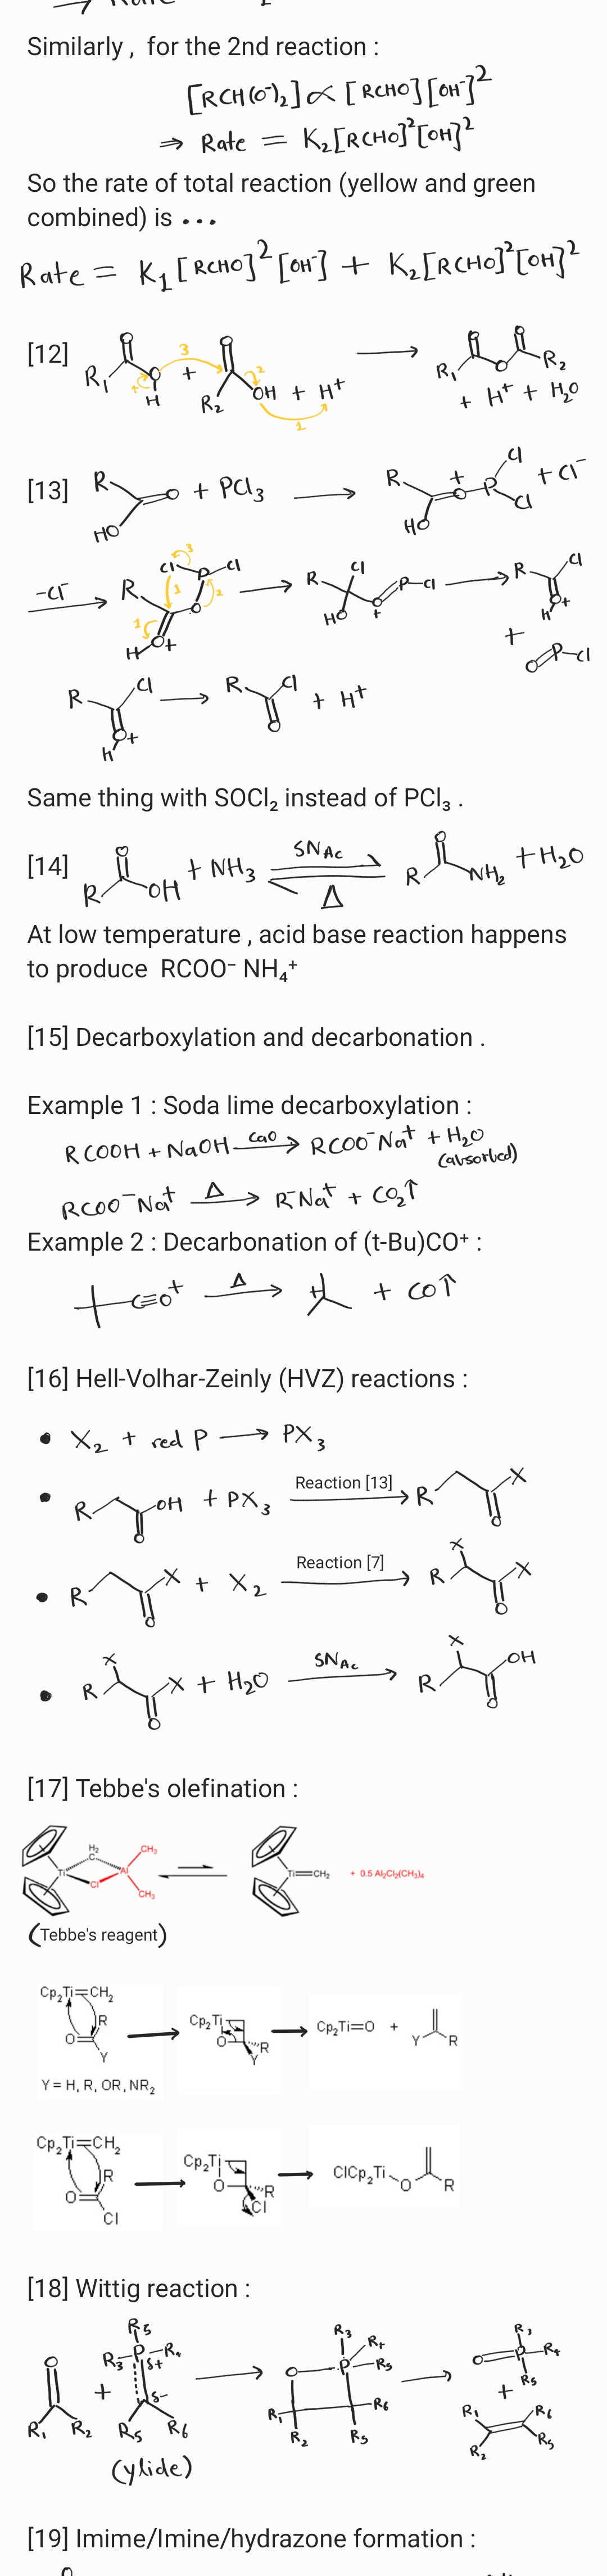 → Rate =
Similarly , for the 2nd reaction :
[RCH(O⁻)₂] ∝ [RCHO][OH⁻]²
⇒ Rate = K₂[RCHO]²[OH]²
So the rate of total reaction (yellow and green
combined) is •••
Rate = K₁[RCHO]²[OH⁻] + K₂[RCHO]²[OH]²
[12] R₁ O H + R₂ OH + H⁺ → R₁ O R₂
+ H⁺ + H₂O
1 2 3
[13] R HO O + PCl₃ → R HO O + P Cl Cl + Cl⁻
-Cl⁻ → R Cl P Cl O H O + 1 1 2 3 → R Cl HO O + P-Cl → R Cl H O +
+
O P-Cl
R Cl O + H → R Cl O + H⁺
Same thing with SOCl₂ instead of PCl₃ .
[14] R O OH + NH₃ SNAc Δ R O NH₂ + H₂O
At low temperature , acid base reaction happens
to produce RCOO⁻ NH₄⁺
[15] Decarboxylation and decarbonation .
Example 1 : Soda lime decarboxylation :
RCOOH + NaOH CaO → RCOO⁻Na⁺ + H₂O
(absorbed)
RCOO⁻Na⁺ Δ → R⁻Na⁺ + CO₂↑
Example 2 : Decarbonation of (t-Bu)CO⁺ :
C≡O⁺ Δ → + + CO↑
[16] Hell-Volhar-Zeinly (HVZ) reactions :
• X₂ + red P → PX₃
• R OH O + PX₃ Reaction [13] → R X O
• R X O + X₂ Reaction [7] → R X X O
• R X X O + H₂O SNAc → R X OH O
[17] Tebbe's olefination :
Ti H₂ C Cl Al CH₃ CH₃ Ti=CH₂ + 0.5 Al₂Cl₂(CH₃)₄
(Tebbe's reagent)
Cp₂Ti=CH₂ O R Y → Cp₂Ti O R Y → Cp₂Ti=O + Y R
Y = H, R, OR, NR₂
Cp₂Ti=CH₂ O R Cl → Cp₂Ti O R Cl → ClCp₂Ti O R
[18] Wittig reaction :
O R₁ R₂ + R₅ R₃-P-R₄ δ+ δ- R₅ R₆ → O P R₃ R₄ R₅ R₁ R₂ R₅ R₆ → O=P R₃ R₄ R₅
+
R₁ R₂ R₆ R₅
(ylide)
[19] Imime/Imine/hydrazone formation :